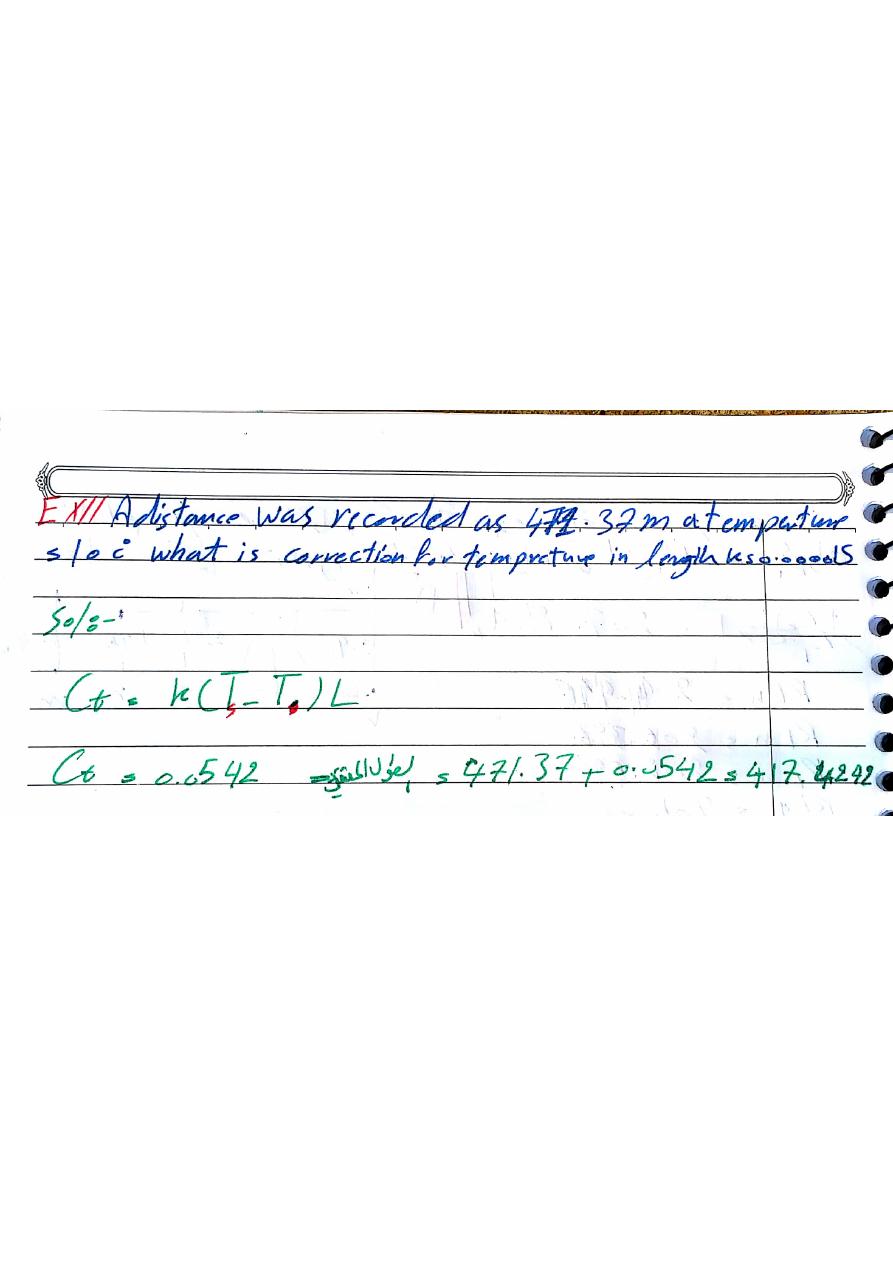 EX11 A distance was recorded as 471.37m a temperture
= 10 c° what is correction for tempreture in length k=0.000015
Sol:-
Ct = k(Ts - To)L
Ct = 0.0542 = 471.37 + 0.0542 = 417.4242